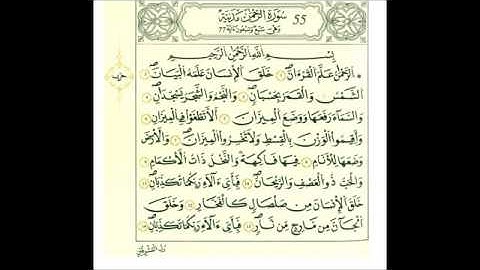 سُورَةُ الرَّحْمَٰنِ مَدَنِيَّة 55
وَهْىَ سَبْعٌ وَسَبْعُونَ ءَايَة 77
بِسْمِ اللَّهِ الرَّحْمَٰنِ الرَّحِيمِ
حزب
الرَّحْمَٰنُ عَلَّمَ الْقُرْءَانَ خَلَقَ الْإِنسَانَ عَلَّمَهُ الْبَيَانَ
الشَّمْسُ وَالْقَمَرُ بِحُسْبَانٍ وَالنَّجْمُ وَالشَّجَرُ يَسْجُدَانِ
وَالسَّمَاءَ رَفَعَهَا وَوَضَعَ الْمِيزَانَ أَلَّا تَطْغَوْا فِي الْمِيزَانِ
وَأَقِيمُوا الْوَزْنَ بِالْقِسْطِ وَلَا تُخْسِرُوا الْمِيزَانَ وَالْأَرْضَ
وَضَعَهَا لِلْأَنَامِ فِيهَا فَاكِهَةٌ وَالنَّخْلُ ذَاتُ الْأَكْمَامِ
وَالْحَبُّ ذُو الْعَصْفِ وَالرَّيْحَانُ فَبِأَيِّ ءَالَاءِ رَبِّكُمَا تُكَذِّبَانِ
خَلَقَ الْإِنسَانَ مِن صَلْصَالٍ كَالْفَخَّارِ وَخَلَقَ
الْجَانَّ مِن مَّارِجٍ مِّن نَّارٍ فَبِأَيِّ ءَالَاءِ رَبِّكُمَا تُكَذِّبَانِ
رَبُّ الْمَشْرِقَيْنِ